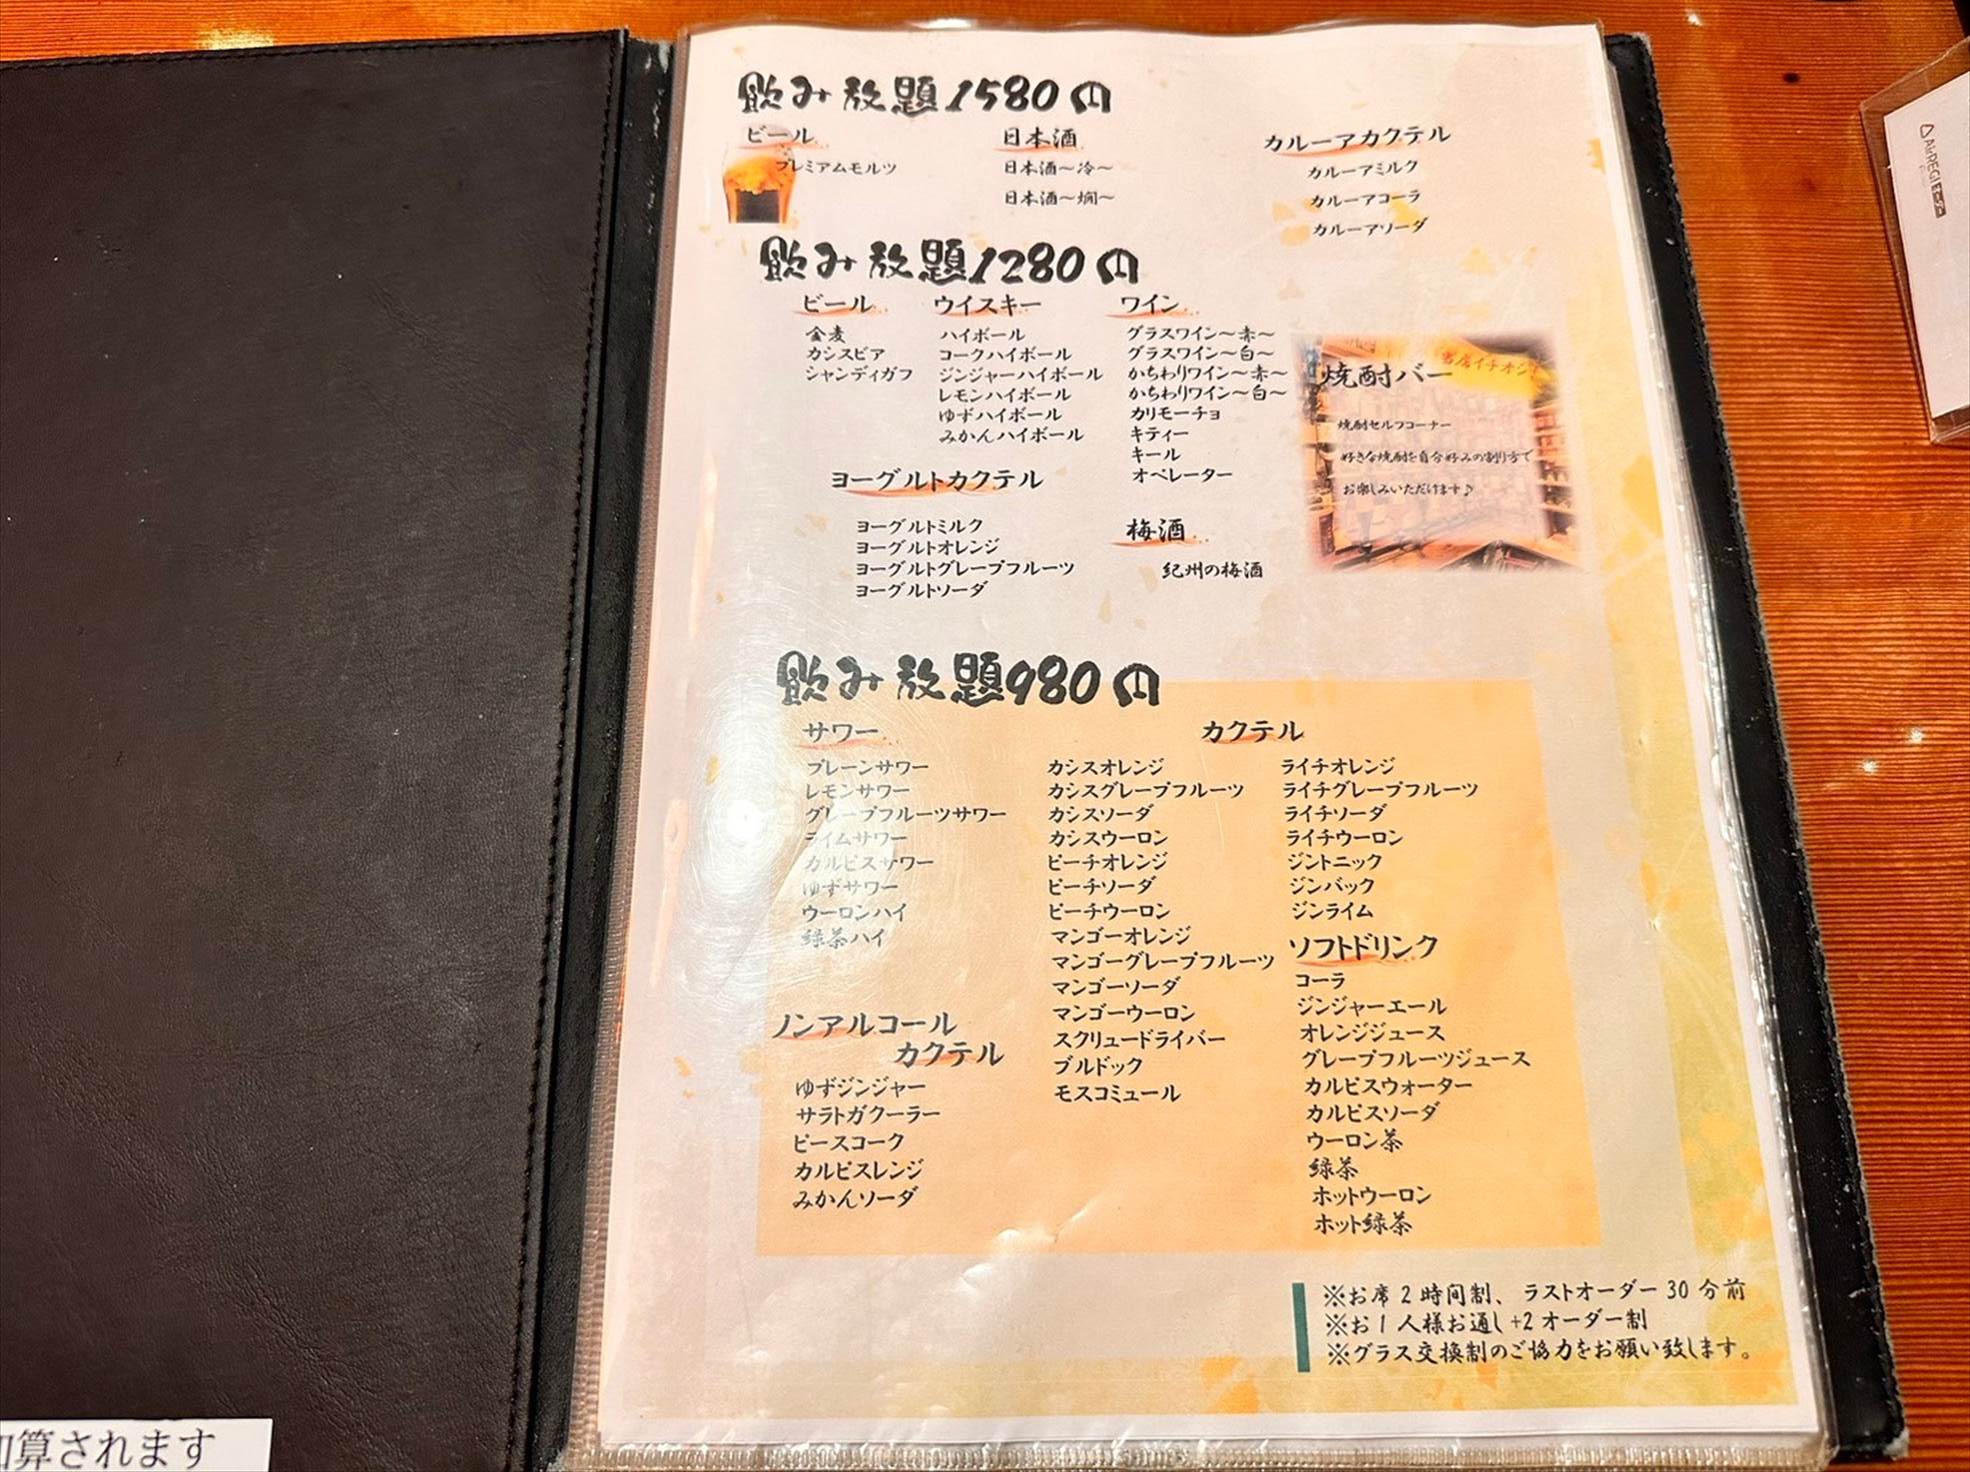 飲み放題1580円
ビール
プレミアムモルツ
日本酒
日本酒～冷～
日本酒～燗～
カルーアカクテル
カルーアミルク
カルーアコーラ
カルーアソーダ
飲み放題1280円
ビール
金麦
カシスビア
シャンディガフ
ウイスキー
ハイボール
コークハイボール
ジンジャーハイボール
レモンハイボール
ゆずハイボール
みかんハイボール
ワイン
グラスワイン～赤～
グラスワイン～白～
かちわりワイン～赤～
かちわりワイン～白～
カリモーチョ
キティー
キール
オペレーター
当店イチオシ!
焼酎バー
焼酎セルフコーナー
好きな焼酎を自分好みの割り方で
お楽しみいただけます♪
ヨーグルトカクテル
ヨーグルトミルク
ヨーグルトオレンジ
ヨーグルトグレープフルーツ
ヨーグルトソーダ
梅酒
紀州の梅酒
飲み放題980円
サワー
プレーンサワー
レモンサワー
グレープフルーツサワー
ライムサワー
カルピスサワー
ゆずサワー
ウーロンハイ
緑茶ハイ
ノンアルコール
カクテル
ゆずジンジャー
サラトガクーラー
ピースコーク
カルピスレンジ
みかんソーダ
カクテル
カシスオレンジ
カシスグレープフルーツ
カシスソーダ
カシスウーロン
ピーチオレンジ
ピーチソーダ
ピーチウーロン
マンゴーオレンジ
マンゴーグレープフルーツ
マンゴーソーダ
マンゴーウーロン
スクリュードライバー
ブルドック
モスコミュール
ライチオレンジ
ライチグレープフルーツ
ライチソーダ
ライチウーロン
ジントニック
ジンバック
ジンライム
ソフトドリンク
コーラ
ジンジャーエール
オレンジジュース
グレープフルーツジュース
カルピスウォーター
カルピスソーダ
ウーロン茶
緑茶
ホットウーロン
ホット緑茶
※お席2時間制、ラストオーダー30分前
※お1人様お通し+2オーダー制
※グラス交換制のご協力をお願い致します。
算されます
AirREGI
オーダー